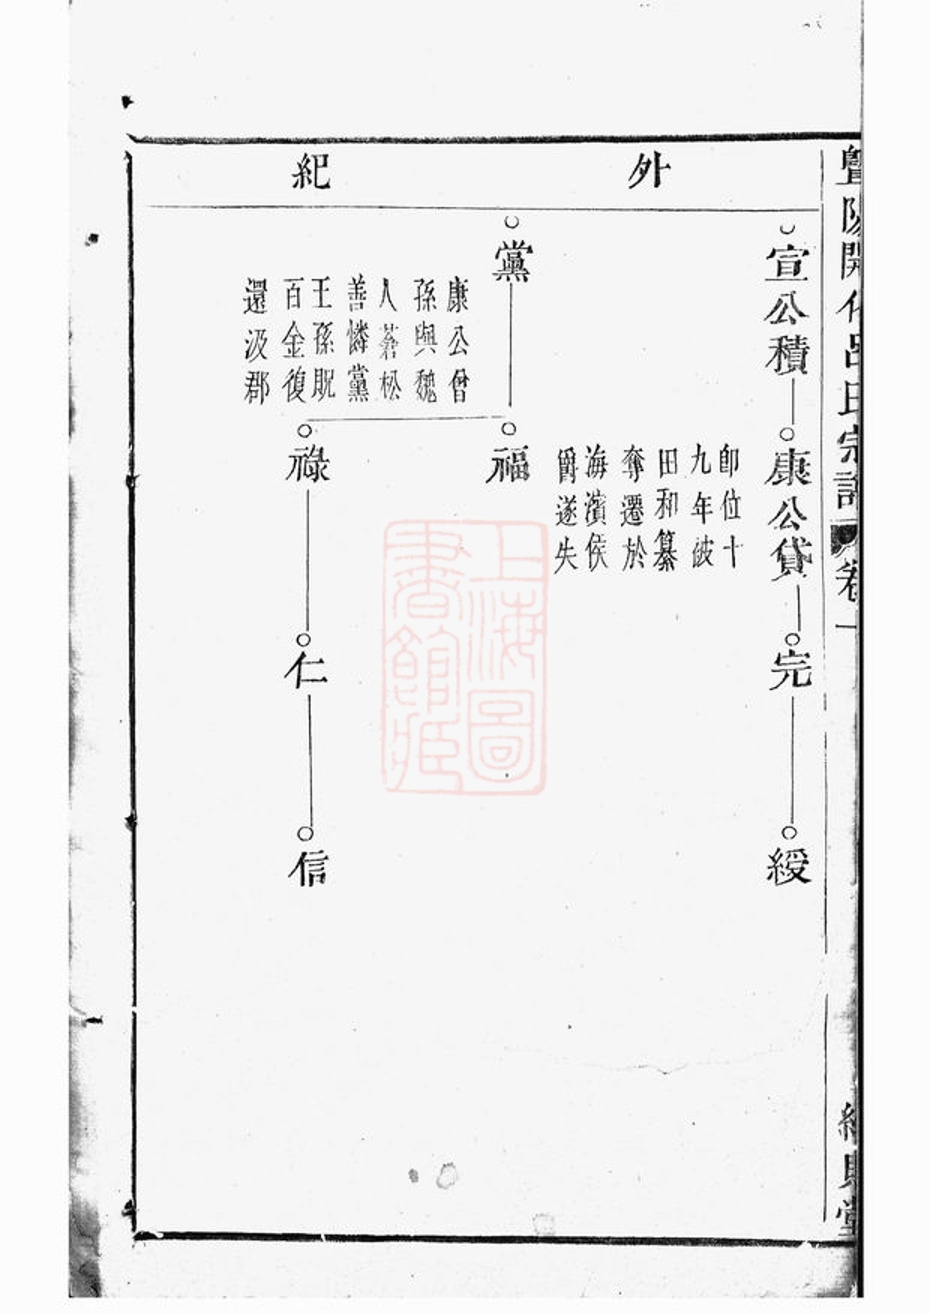 暨陽開化呂氏宗譜 卷一
外
紀
宣公積
康公貸
即位十
九年被
田和篡
奪遷於
海濱侯
爵遂失
完
綬
黨
康公曾
孫與魏
人蒼松
善憐黨
王孫貺
百金復
還汲郡
福
祿
仁
信
上海圖
書館藏